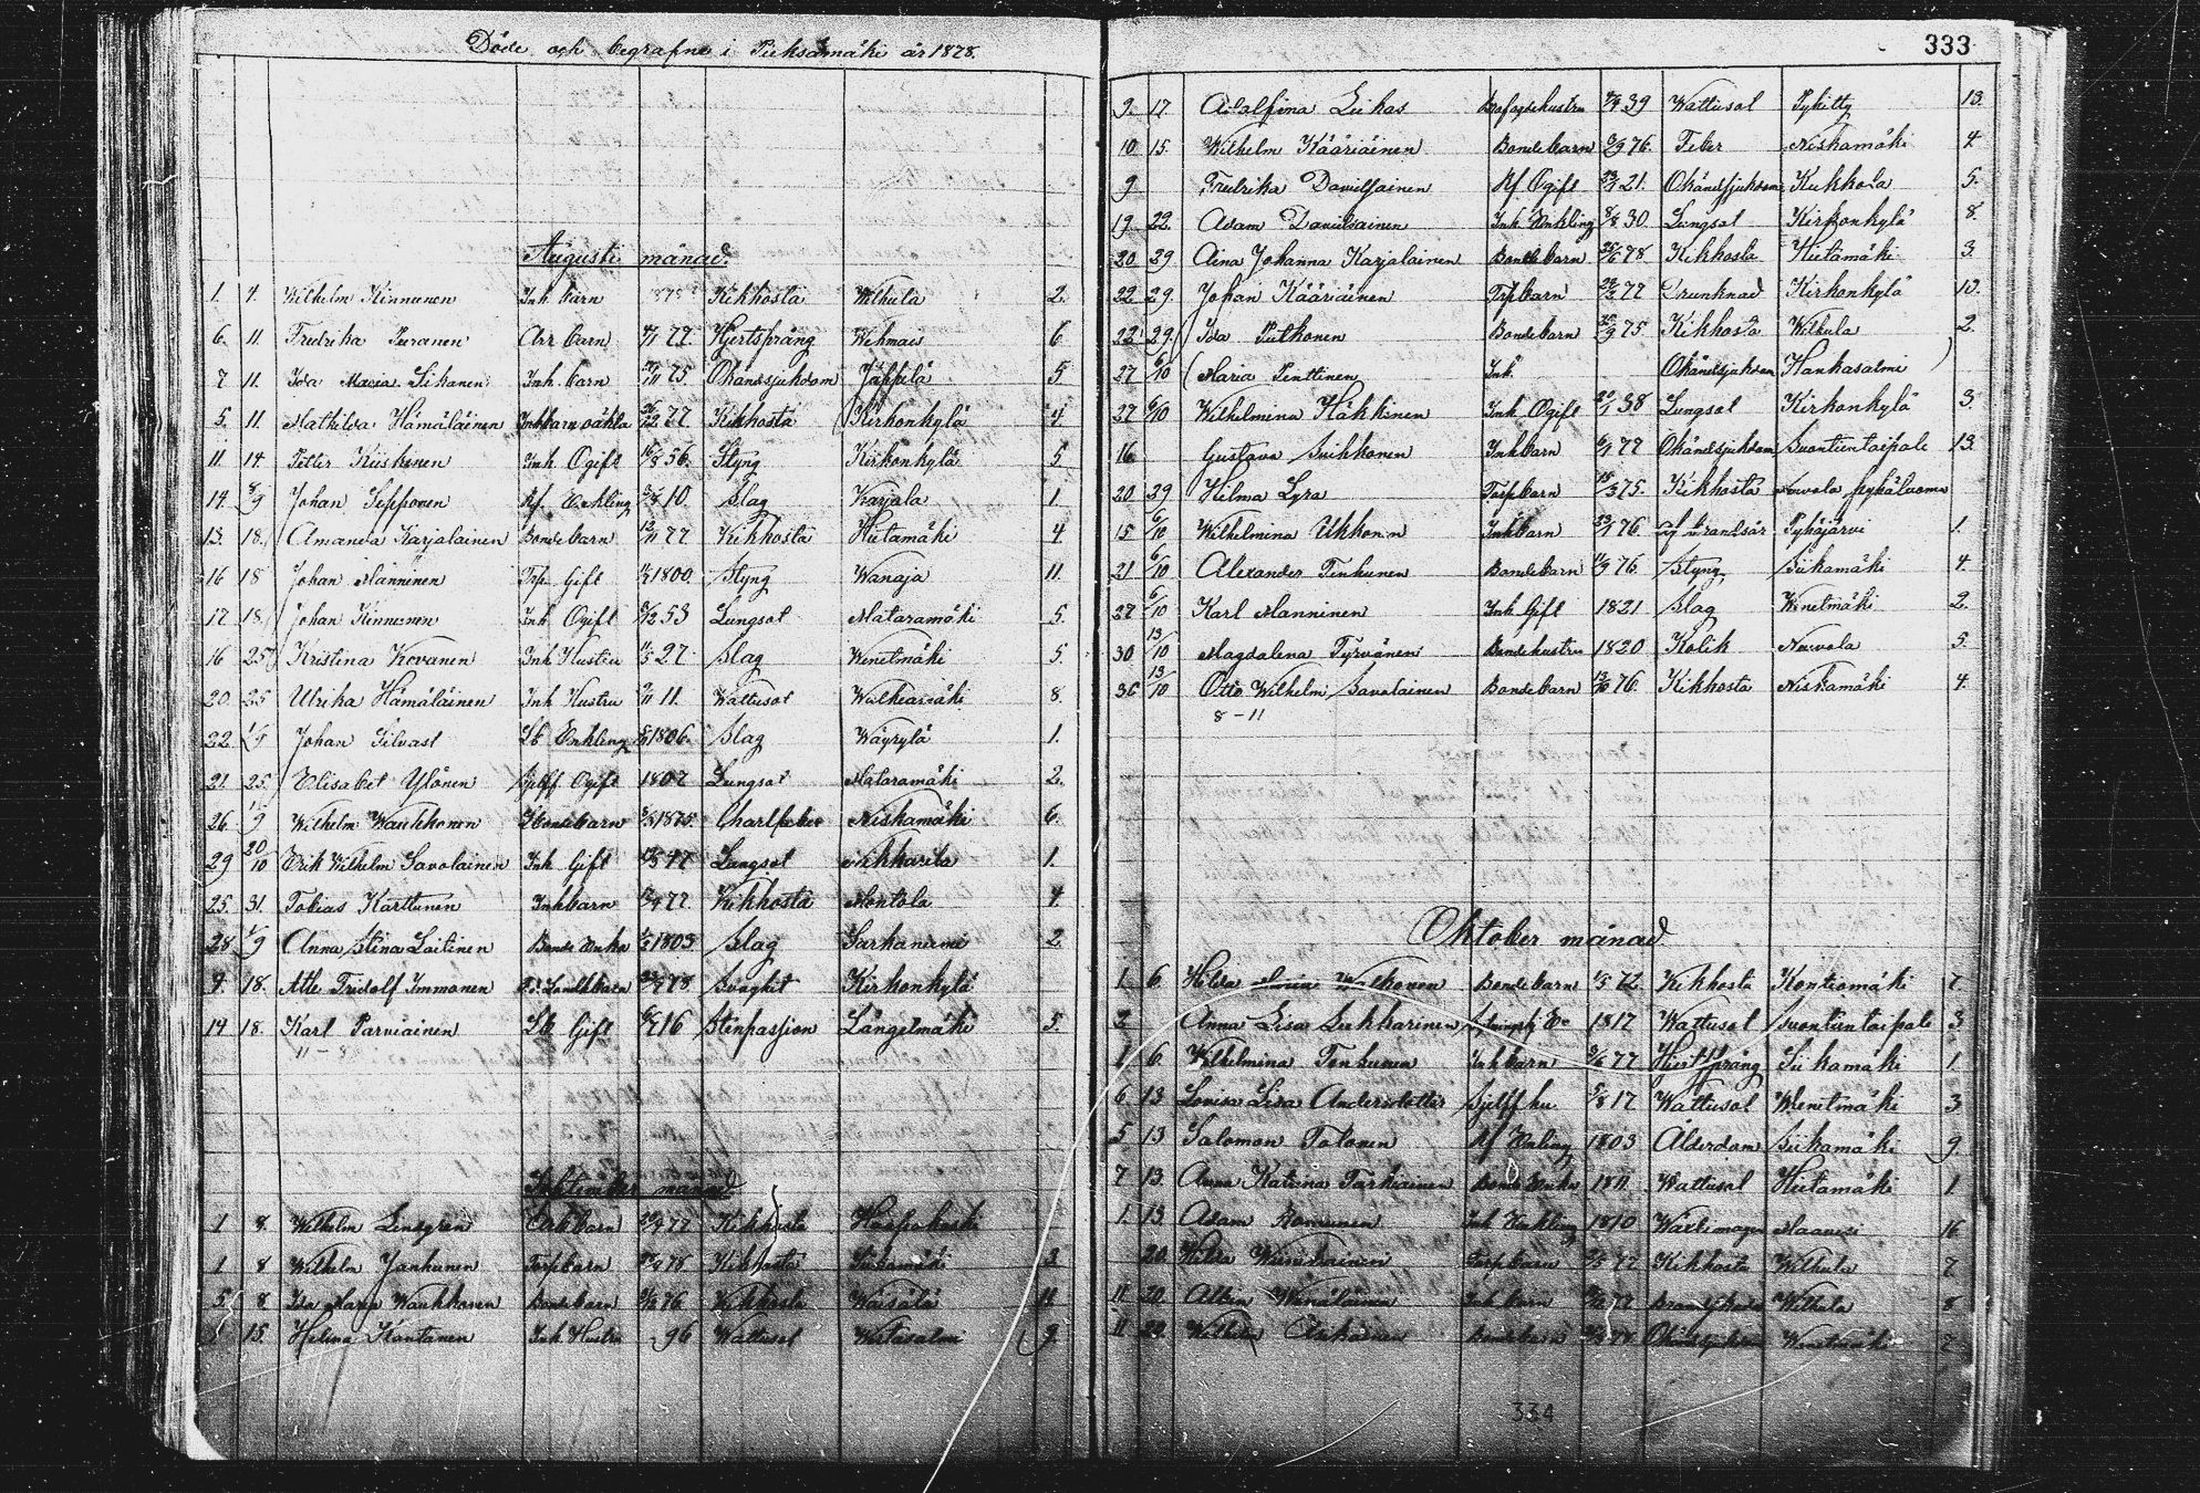 Döde och begrafne i Pieksämäki år 1878.
Augusti månad.
1. 4. Wilhelm Kinnunen Inh. barn 878 Kikhosta Wilhula 2.
6. 11. Fredrika Puranen Arr barn 77. Hjertsprång Wehmais 6
7 11. Ida Maria Sikanen Inh. barn 75. Okändsjukdom Jäppilä 5
5. 11. Mathilda Hämäläinen Inhbarn oäkta 77. Kikhosta Kirkonkylä 4
11. 14. Petter Kiiskinen Inh. Ogift 16/8 56. Styng Kirkonkylä 5
14. 8/9 Johan Sepponen Rf. Enkling 10. Slag Karjala 1.
13. 18. Amanda Karjalainen Bondebarn 12/11 77 Kikhosta Hietamäki 4.
16 18 Johan Manninen Trp. Gift 1800. Styng Wanaja 11.
17 18. Johan Kinnunen Inh Ogift 53 Lungsot Mataramäki 5.
16 25 Kristina Kovanen Inh Hustru 27. Slag Wenetmäki 5.
20. 25 Ulrika Hämäläinen Inh Hustru 11. Wattusot 8.
22. 1/9 Johan Silvast Sb Enkling 1806. Slag Wäyrylä 1.
21. 25. Elisabet Ylönen Ogift 1807 Lungsot Mataramäki 2.
26. 1/9 Wilhelm Waukkonen Bondebarn 1875. Niskamäki 6.
29 20/10 Erik Wilhelm Savolainen Inh Gift 47 Lungsot Nikkarila 1.
25. 31. Tobias Karttunen Inhbarn 77. Kikhosta Montola 4.
28 1/9 Anna Stina Laitinen Bonde Enka 1803 Slag Sarkaniemi 2
9. 18. Atle Fridolf Immonen 78 Svaghet Kirkonkylä
14 18. Karl Parviainen Sb Gift 16 Stenpassion Längelmäki 5.
11 – 8
September månad
1 8. Wilhelm Lindgren barn 77 Kikhosta Haapakoski
1 8 Wilhelm Janhunen Torpbarn 78 Kikhosta Siikamäki 3
5. 8 Ida Maria Waukkonen Bondebarn 76 Kikhosta Waisälä 11
15. Helena Kontanen Inh Hustru 96 Wattusot 9.
333
9. 17. Adolfina Liikas 39 Wattusot Pykitty 13.
10 15. Wilhelm Kääriäinen Bondebarn 76. Feber Niskamäki 4
9 Fredrika Danielsainen Rf. Ogift 21. Okändsjukdom Kukkola 5.
19 22. Adam Danielsainen Inh. Enkling 8/8 30 Lungsot Kirkonkylä 8.
20 29 Aina Johanna Karjalainen Bondebarn 78 Kikhosta Hietämäki 3.
22 29. Johan Kääriäinen Trpbarn 77 Drunknad Kirkonkylä 13.
22 29. Ida Putkonen Bondebarn 75 Kikhosta Wilhula 2.
27 6/10 (Maria Penttinen Inh. Okändsjukdom Hankasalmi)
27 6/10 Wilhelmina Häkkinen Inh Ogift 38 Lungsot Kirkonkylä 3.
16 Gustava Siikkonen Inhbarn 77 Okändsjukdom Suontientaipale 13.
20 29 Hilma Lyra Torpbarn 75. Kikhosta
15 6/10 Wilhelmina Ukkonen Inhbarn 76. af brandsår Pyhäjärvi 1.
21 6/10 Alexander Tenhunen Bondebarn 76. Styng Siikamäki 4.
27 6/10 Karl Manninen Inh Gift 1821 Slag Wenetmäki 2.
30 13/10 Magdalena Tyrvänen Bondehustru 1820 Kolik Neuvola 5.
30 13/10 Otto Wilhelm Savolainen Bondebarn 13/10 76. Kikhosta Niskamäki 4.
8 – 11
Oktober månad
1. 6. Hilda Maria Walkonen Bondebarn 72. Kikhosta Kontiomäki 7.
2 Anna Lisa Sukkarinen 1817 Wattusot Suontientaipale 3
1 6. Wilhelmina Tenhunen Inhbarn 77 Hjertsprång Siikamäki 1.
6. 13 Lovisa Lisa Andersdotter Sjelff hu 5/8 17 Wattusot Wenetmäki 3
5 13 Salomon Tolonen Rf Enkling 1803 Ålderdom Siikamäki 9.
7 13. Anna Katrina Tarkiainen Bonde Enka 1811. Wattusot Hietamäki 1
1. 13. Adam Romunen Inh Enkling 1810 Maavesi 16
20. Hilda Torpbarn 77 Kikhosta Wilhula 7
11 20. Albin Inh barn 77 Wilhula 8
11 20. Wilhelm Bondebarn 78 Okändsjukdom Wenetmäki 2
334